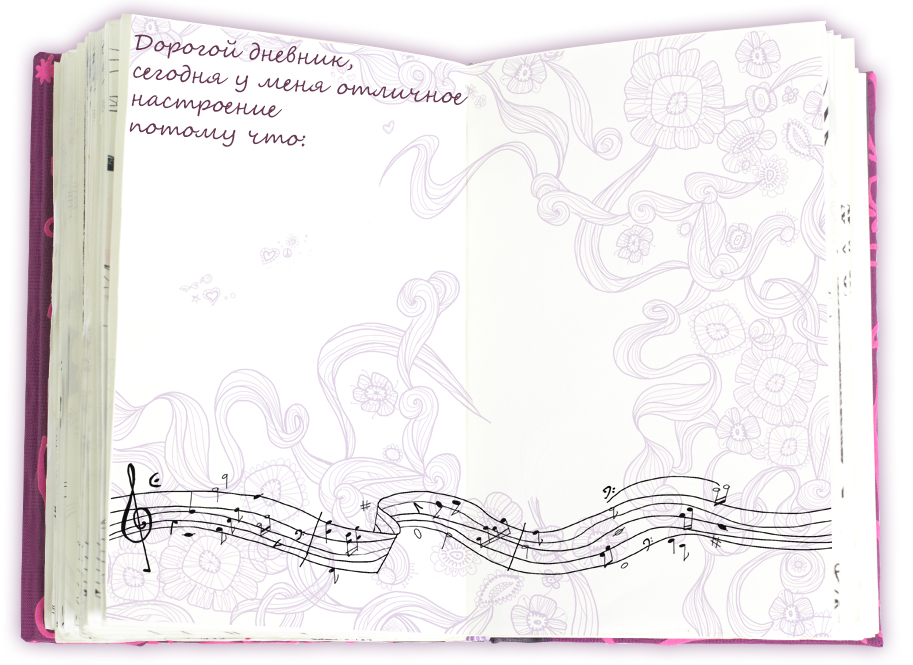 Дорогой дневник,
сегодня у меня отличное
настроение
потому что: